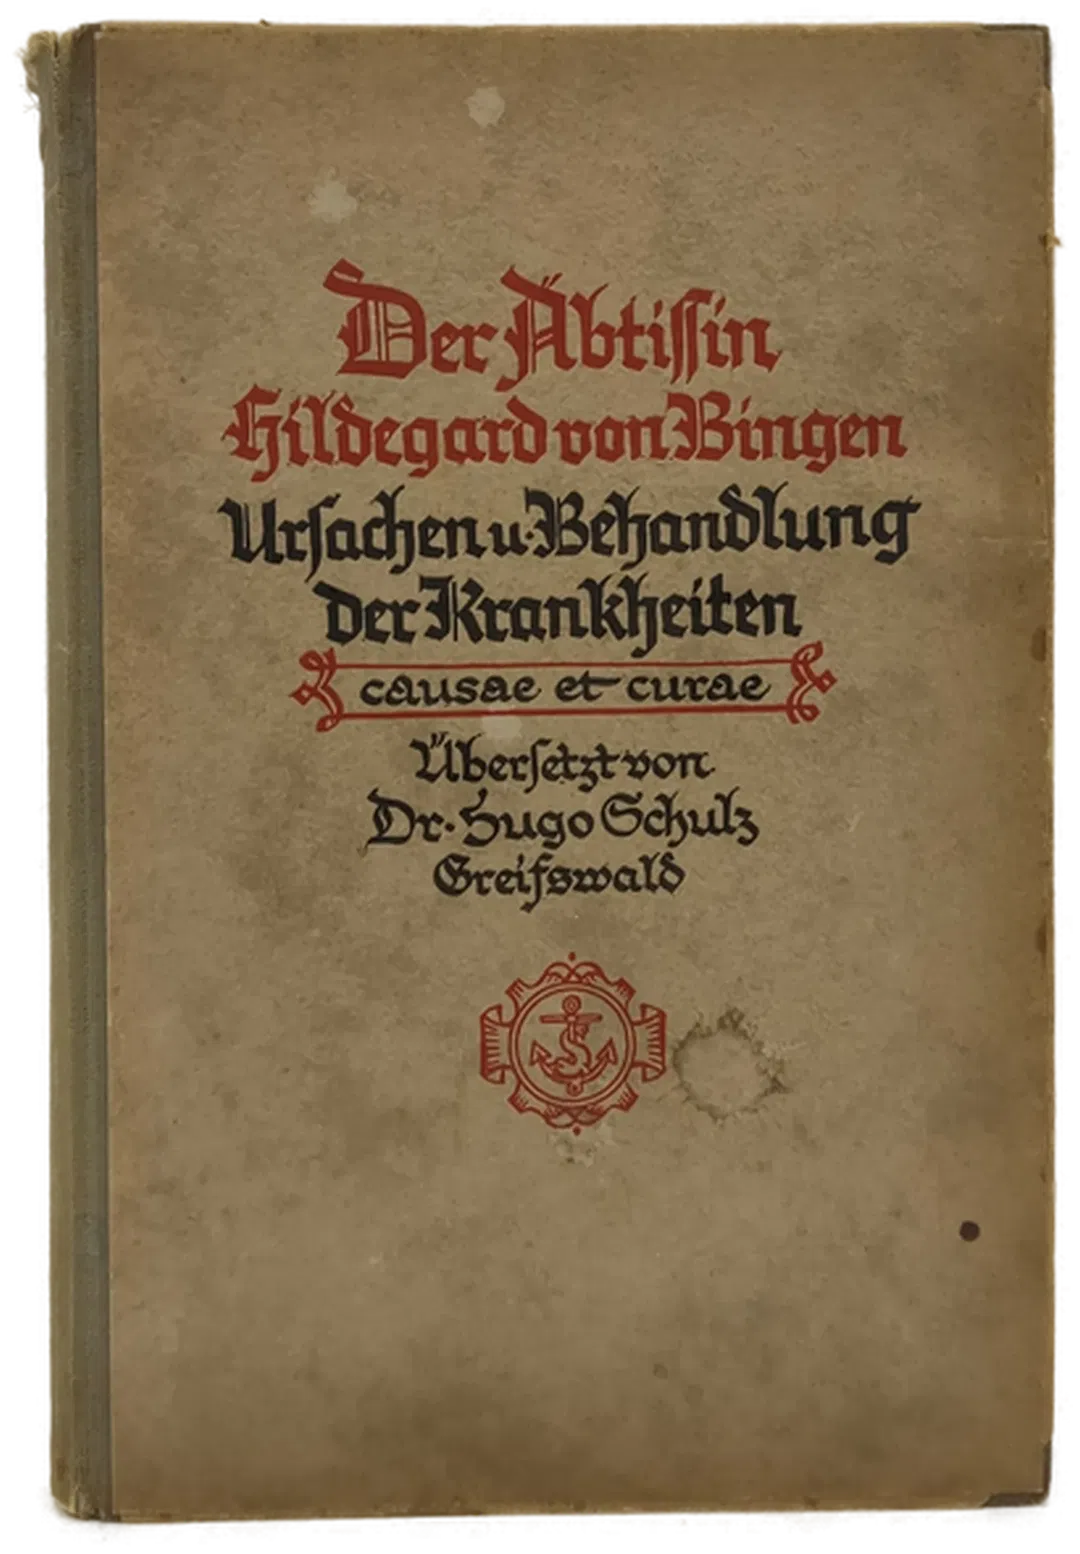 Der Äbtiſſin
Hildegard von Bingen
Urſachen u. Behandlung
der Krankheiten
causae et curae
Überſetzt von
Dr. Hugo Schulz
Greifswald